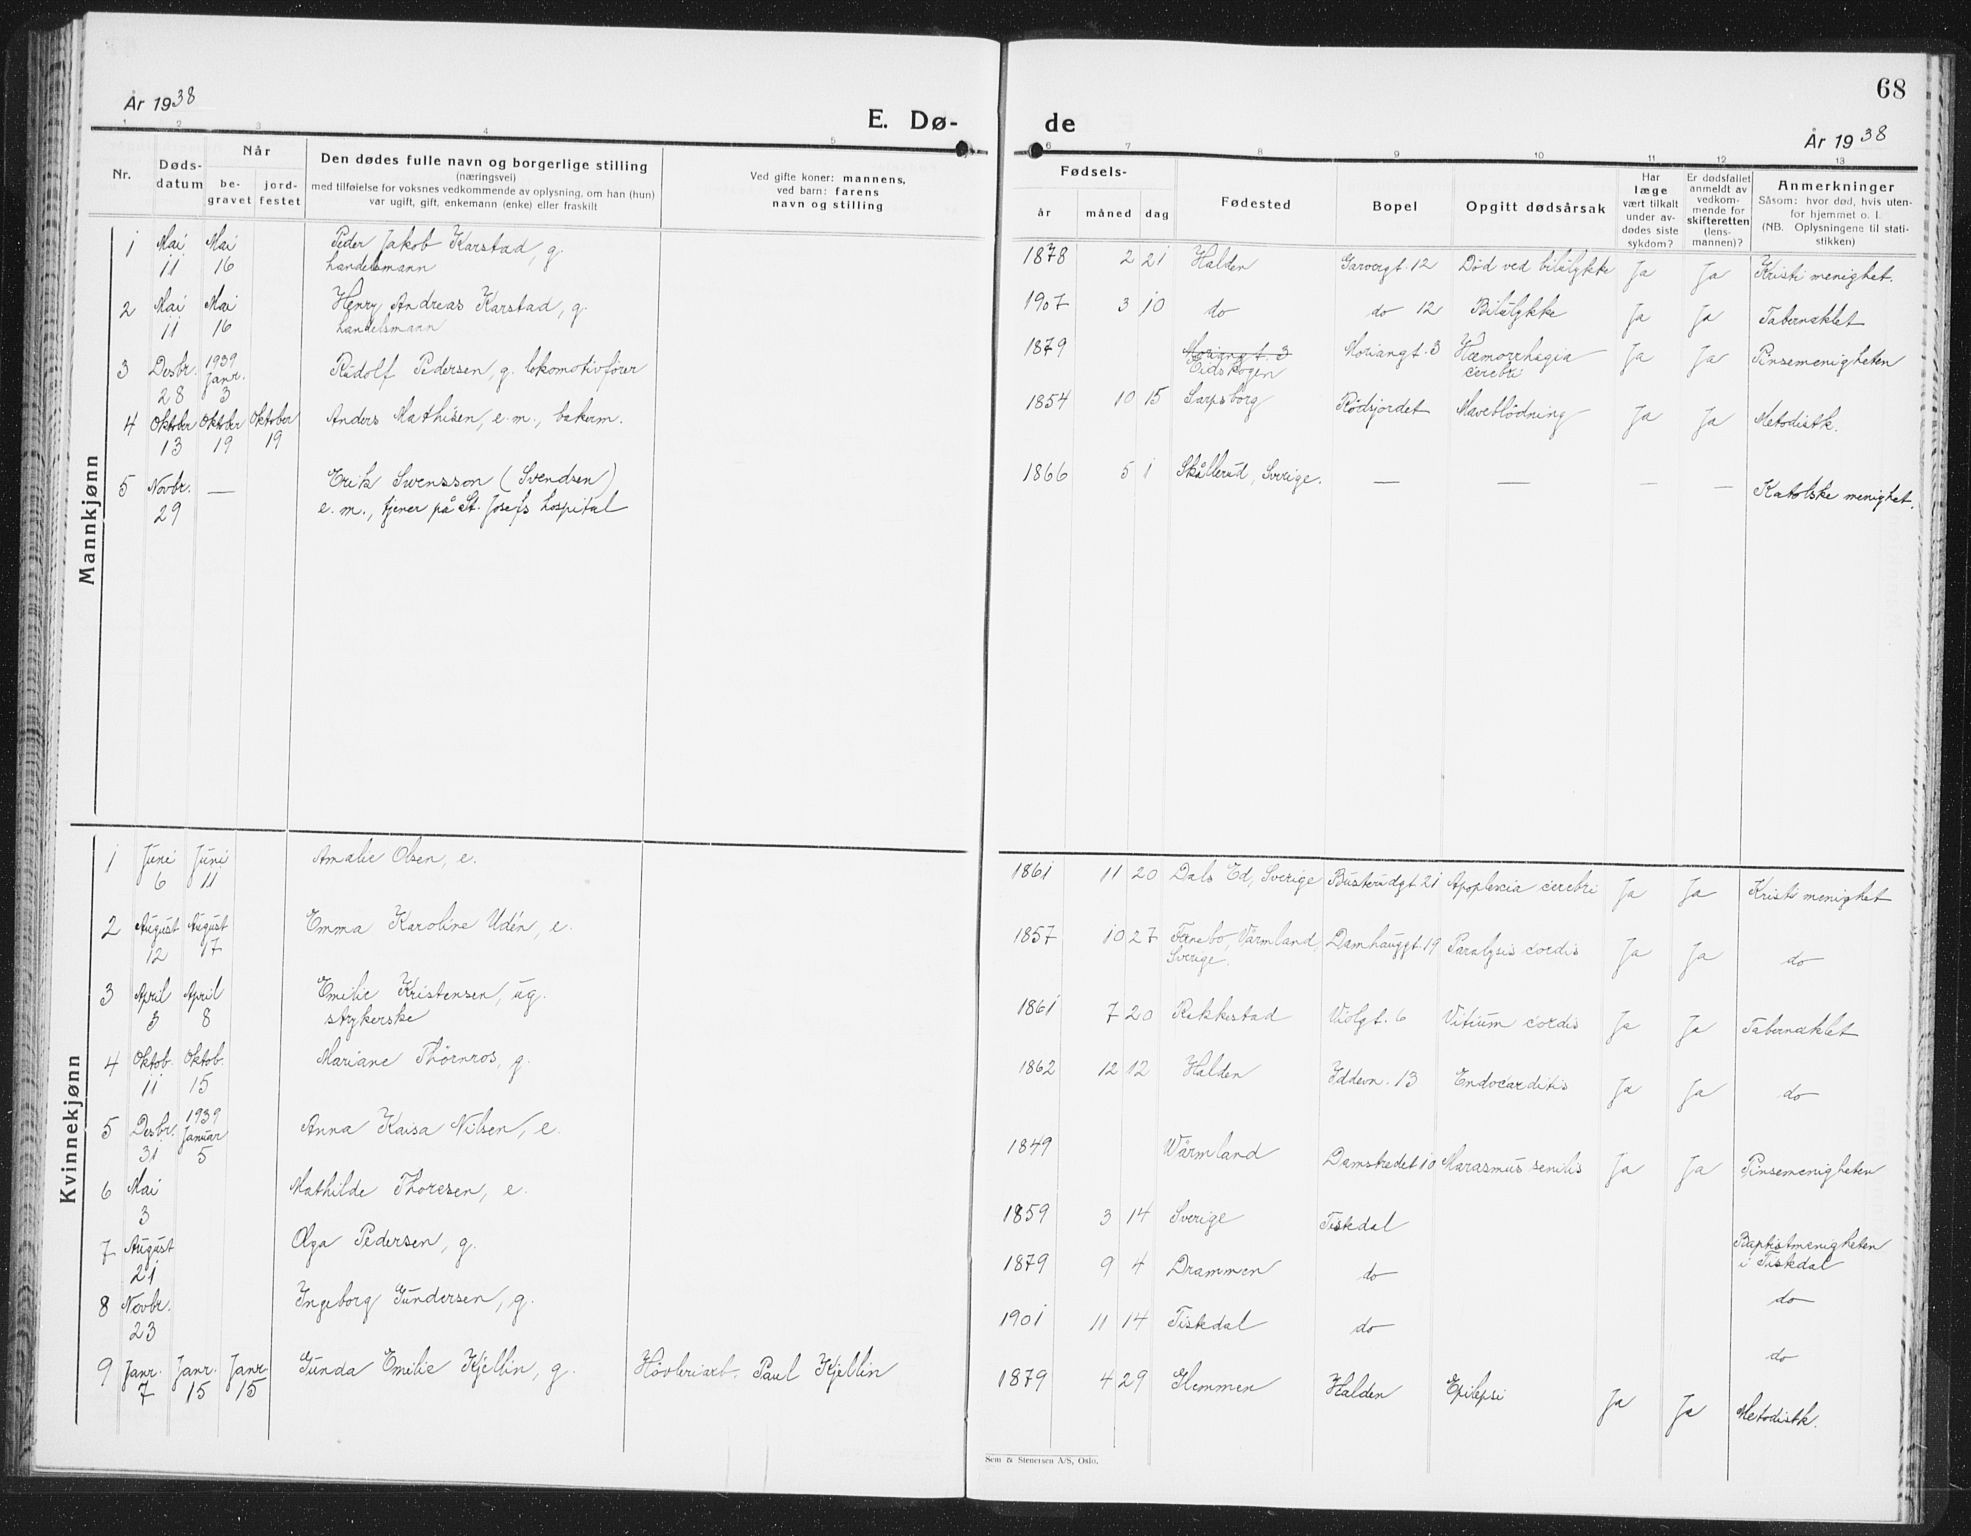 År 1938
E. Dø-
de
68
År 1938
1 2 3 4 5 6 7 8 9 10 11 12 13
Nr.
Døds-
datum
Når
be-
gravet
jord-
festet
Den dødes fulle navn og borgerlige stilling
(næringsvei)
med tilføielse for voksnes vedkommende av oplysning, om han (hun)
var ugift, gift, enkemann (enke) eller fraskilt
Ved gifte koner: mannens,
ved barn: farens
navn og stilling
Fødsels-
år måned dag
Fødested
Bopel
Opgitt dødsårsak
Har
læge
vært tilkalt
under av-
dødes siste
sykdom?
Er dødsfallet
anmeldt av
vedkom-
mende for
skifteretten
(lens-
mannen)?
Anmerkninger
Såsom: hvor død, hvis uten-
for hjemmet o. l.
(NB. Oplysningene til stati-
stikken)
Mannkjønn
1 Mai Mai Peder Jakob Karstad, g.
11 16 handelsmann
1878 2 21 Halden Garvergt. 12 Død ved bilulykke Ja Ja Kristi menighet.
2 Mai Mai Henry Andreas Karstad, g.
11 16 handelsmann
1907 3 10 do do 12 Bilulykke Ja Ja Tabernaklet
3 Desbr. 1939 Rudolf Pedersen, g. lokomotivfører
28 Janr. 3
1879 Moriangt. 3 Moriangt. 3 Hæmorrhagia Ja Ja Pinsemenigheten
Eidskogen cerebri
4 Oktober Oktober Oktober Anders Mathisen, e.m., bakerm.
13 19 19
1854 10 15 Sarpsborg Rødsjordet Maveblödning Ja Ja Metodistk.
5 Novbr. — Erik Swensson (Svendsen)
29 e.m., tjener på St. Josefs hospital
1866 5 1 Skållerud, Sverige. — — — — Katolske menighet.
Kvinnekjønn
1 Juni Juni Amalie Olsen, e.
6 11
1861 11 20 Dals Ed, Sverige Busterudgt. 21 Apoplexia cerebri Ja Ja Kristi menighet
2 August August Emma Karoline Udén, e.
12 17
1857 10 27 Värmland, Damhauggt. 19 Paralysis cordis Ja Ja do
Sverige.
3 April April Emilie Kristensen, ug.
3 8 strykerske
1861 7 20 Rakkestad Violgt. 6 Vitium cordis Ja Ja Tabernaklet
4 Oktob. Oktob. Mariane Thörnros, g.
11 15
1862 12 12 Halden Iddevn. 13 Endocarditis Ja Ja do
5 Desbr. 1939 Anna Kaisa Nilsen, e.
31 Januar 5
1849 Wärmland Damstredet 10 Marasmus senilis Ja Ja Pinsemenigheten
6 Mai Mathilde Thoresen, e.
3
1859 3 14 Sverige Tistedal
Baptistmenigheten
i Tistedal
7 August Olga Pedersen, g.
21
1879 9 4 Drammen do
do
8 Novbr. Ingeborg Gundersen, g.
23
1901 11 14 Tistedal do
do
9 Janr. Janr. Janr. Gunda Emilie Kjellin, g. Høvleriarb. Paul Kjellin
7 15 15
1879 4 29 Glemmen Halden Epilepsi Ja Ja Metodistk.
Sem & Stenersen A/S, Oslo.